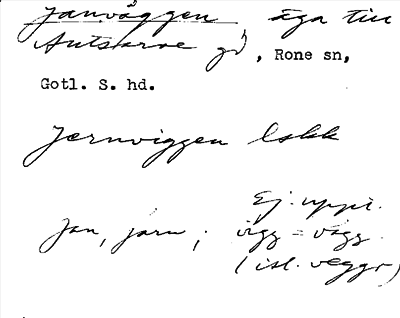 Janväggen, äga till
Autsarve gd, Rone sn,
Gotl. S. hd.
Jernviggen Lskk
Ej uppt.
Jan, järn; vigg = vägg
(isl. veggr)